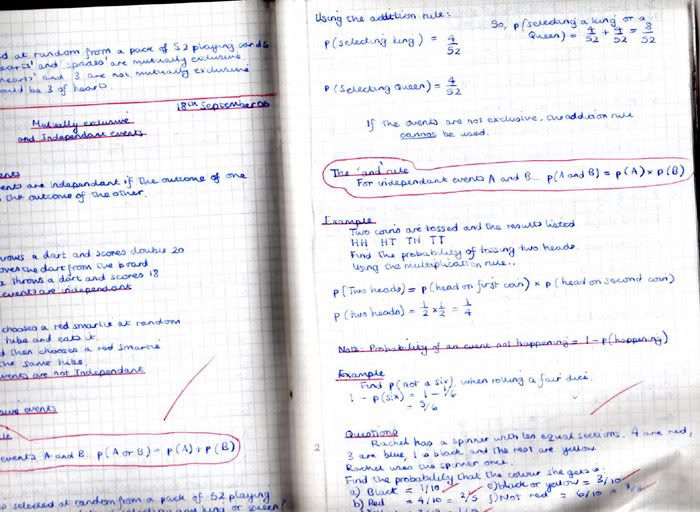 d at random from a pack of 52 playing cards
earts' and 'spades' are mutually exclusive.
hearts' and 3 are not mutually exclusive
ould be 3 of hearts.
18th September 06
Mutually exclusive
and Independant events
ents
ents are independant if the outcome of one
the outcome of the other.
rows a dart and scores double 20
oves the dart from the board
throws a dart and scores 18
events are independant
chooses a red smartie at random
tube and eats it.
d then chooses a red smartie
the same tube.
events are not Independant
sive events
le
events A and B... p(A or B) = p(A) + p(B)
selected at random from a pack of 52 playing
king or queen?
Using the addition rule:
p(selecting king) = 4/52
So, p(selecting a king or a
Queen) = 4/52 + 4/52 = 8/52
p(selecting Queen) = 4/52
If the events are not exclusive, the addition rule
cannot be used.
The 'and' rule
For independant events A and B... p(A and B) = p(A) x p(B)
Example
Two coins are tossed and the results listed
HH HT TH TT
Find the probability of tossing two heads.
Using the multiplication rule..
p(Two heads) = p(head on first coin) x p(head on second coin)
p(two heads) = 1/2 x 1/2 = 1/4
Note: Probability of an event not happening = 1 - p(happening)
Example
Find p(not a six), when rolling a fair dice.
1 - p(six) = 1 - 1/6
= 5/6
Questions
2
Rachel has a spinner with ten equal sections. 4 are red,
3 are blue, 1 is black and the rest are yellow.
Rachel uses the spinner once.
Find the probability that the colour she gets is:
a) Black = 1/10 e) black or yellow = 3/10
b) Red = 4/10 = 2/5 f) Not red = 6/10 =